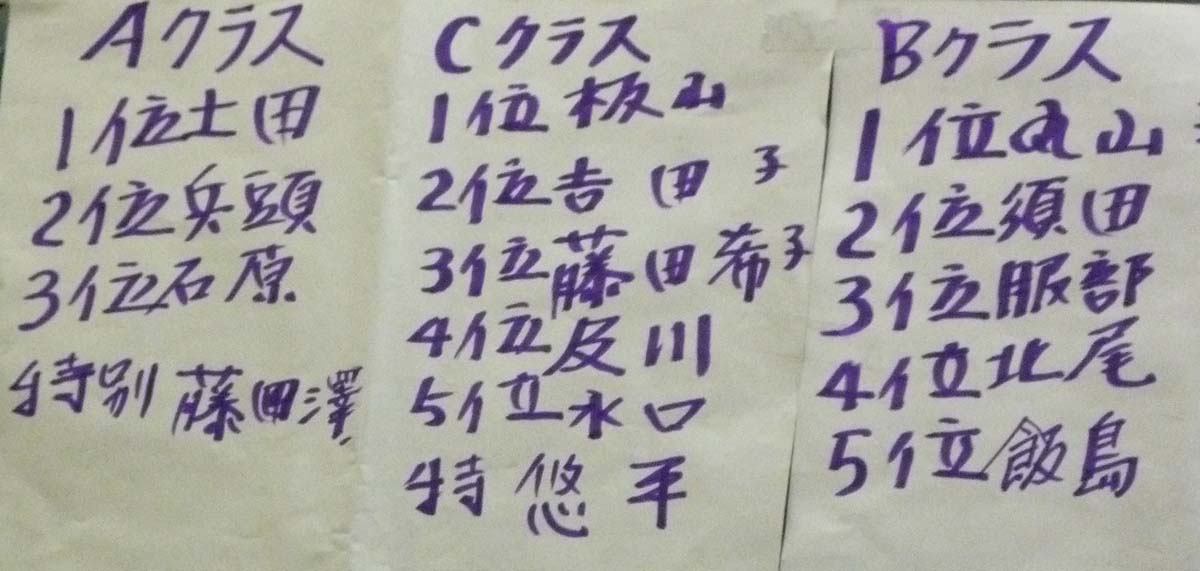 Aクラス
1位土田
2位兵頭
3位石原
特別 藤田澤
Cクラス
1位板山
2位吉田子
3位藤田希子
4位及川
5位水口
特 悠平
Bクラス
1位丸山
2位須田
3位服部
4位北尾
5位飯島